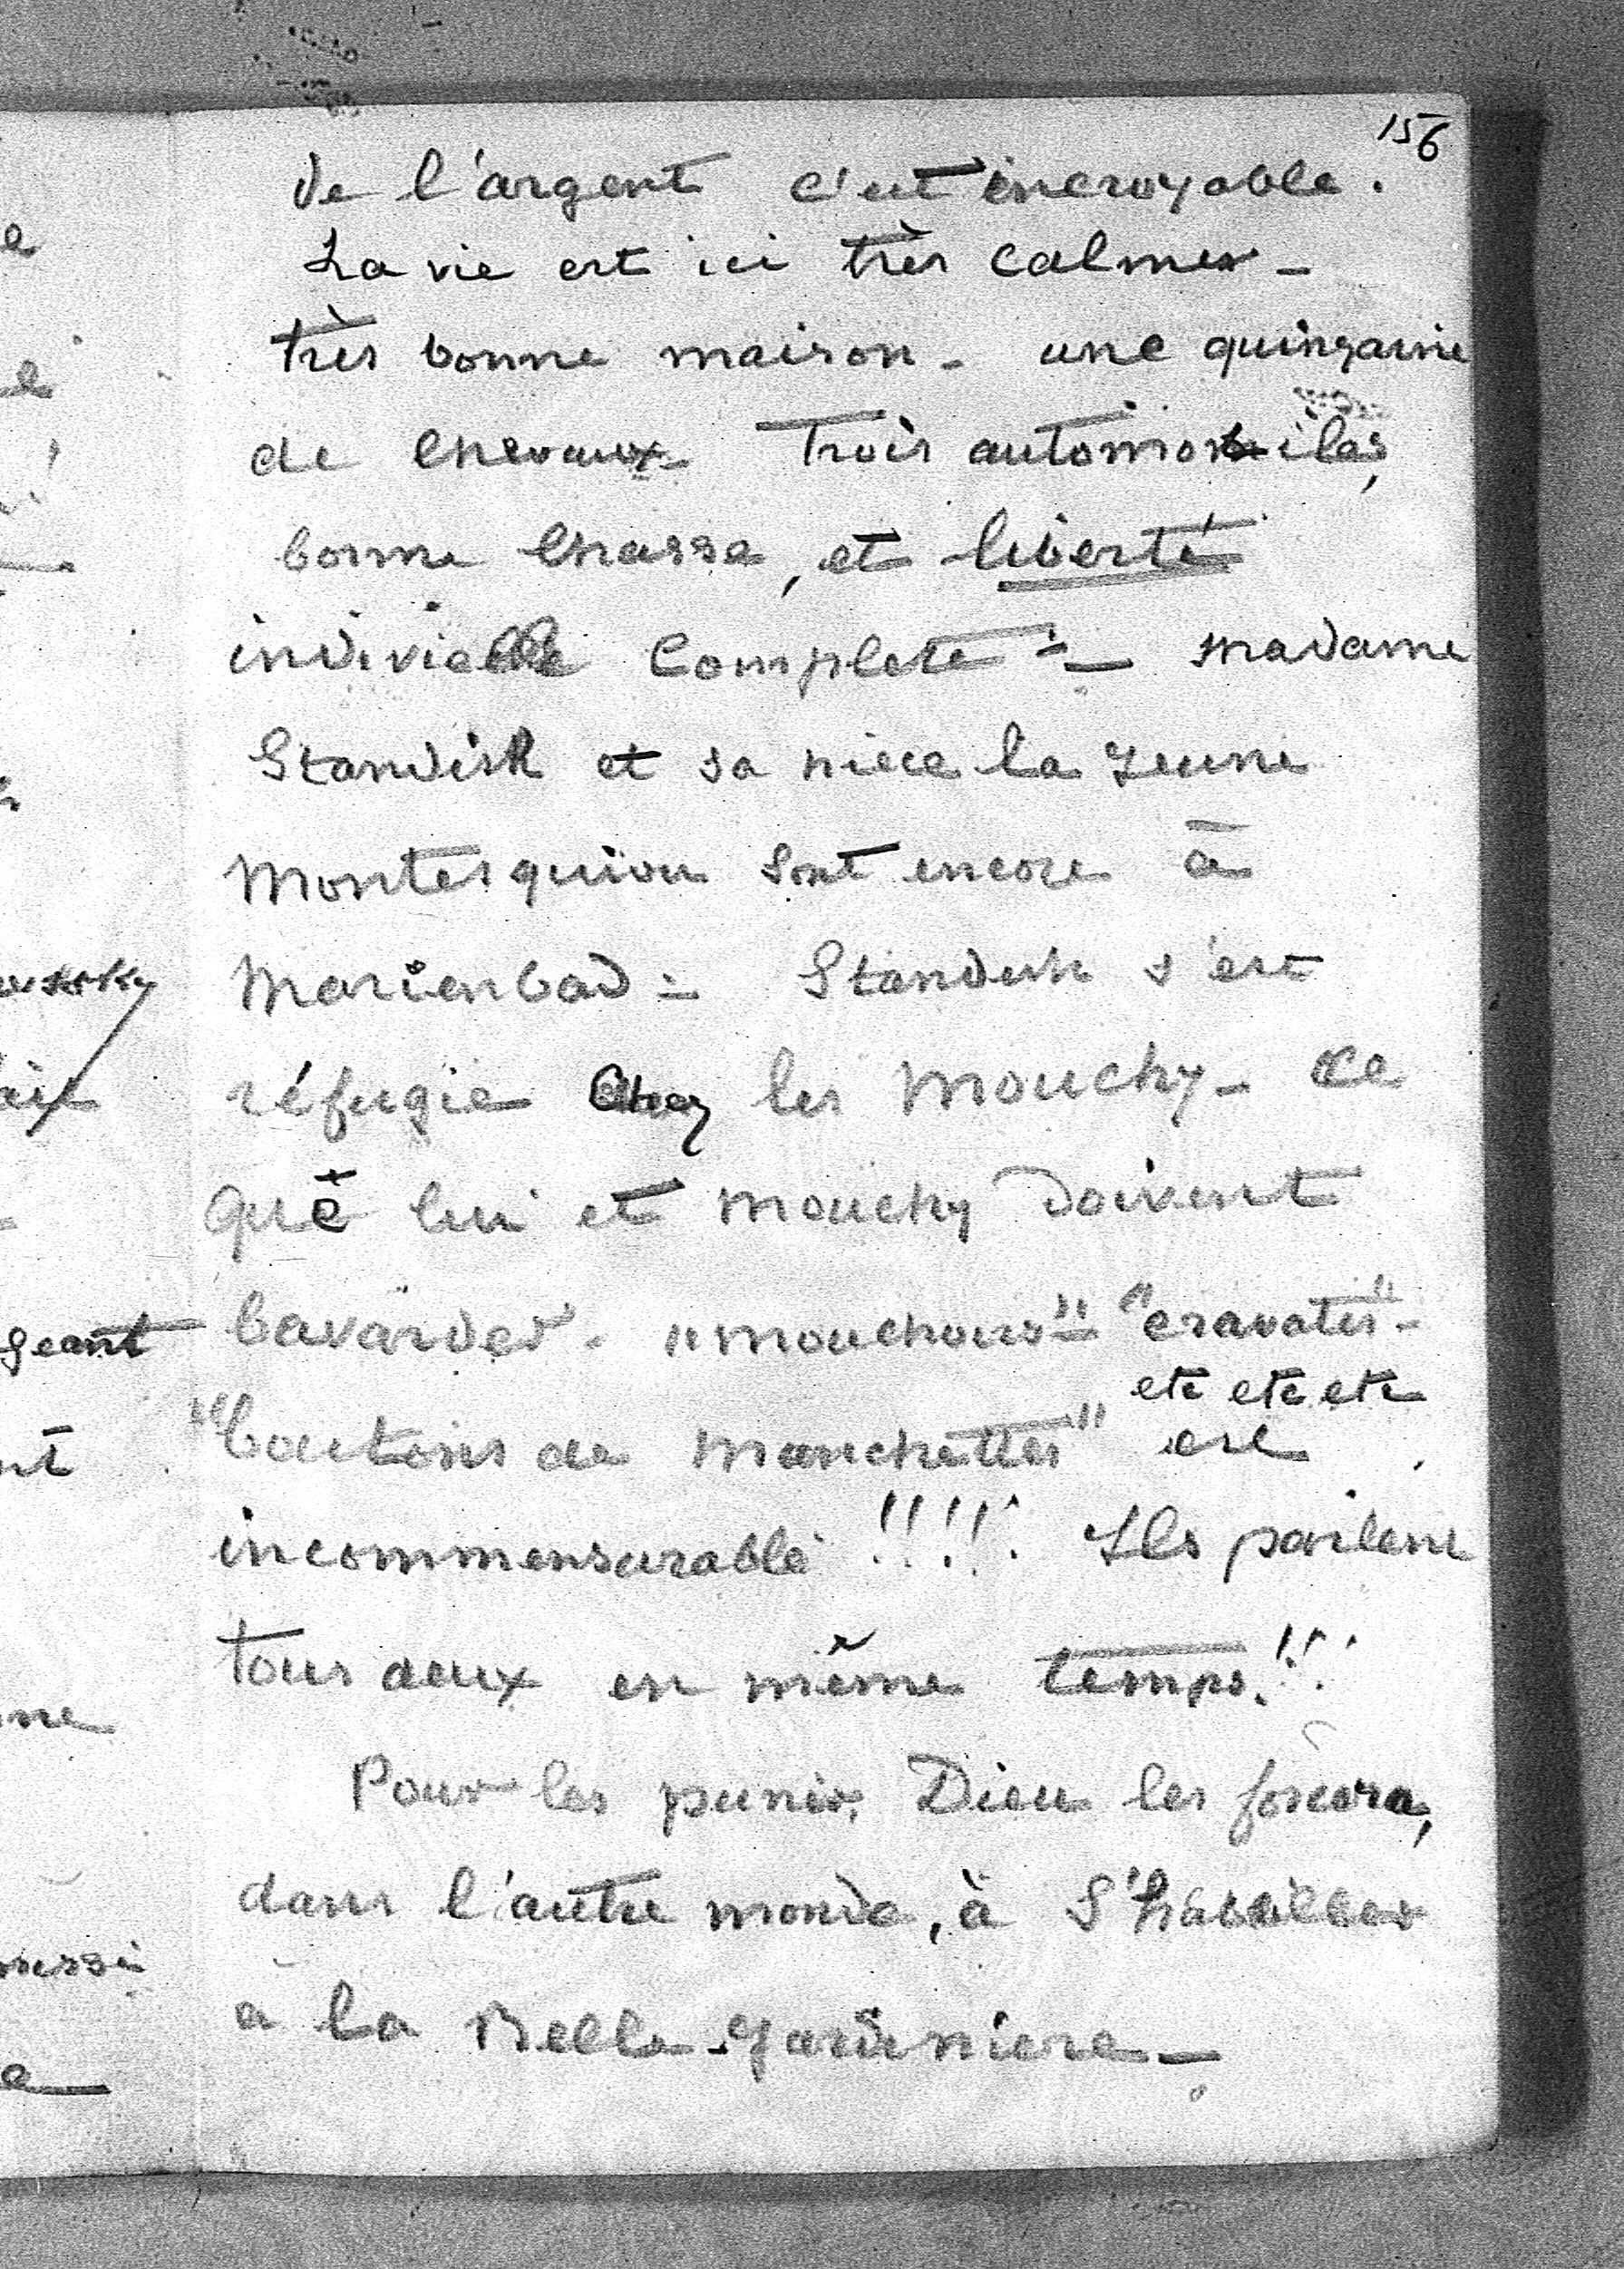 156
de l'argent c'est incroyable.
La vie est ici très calme -
très bonne maison - une quinzaine
de chevaux - Trois automobiles,
bonne chasse, et liberté
indivielle complete - madame
Standish et sa niece la jeune
Montesquiou sont encore à
Marienbad - Standish s'est
réfugie chez les Mouchy - ce
que lui et Mouchy doivent
bavarder. "mouchoirs" - "cravates" -
etc etc etc
"boutons de manchettes" est
incommensurable !!!! Ils parlent
tous deux en même temps!!!
Pour les punir, Dieu les forcera,
dans l'autre monde, à s'habiller
à la Belle Jardiniere -
geant